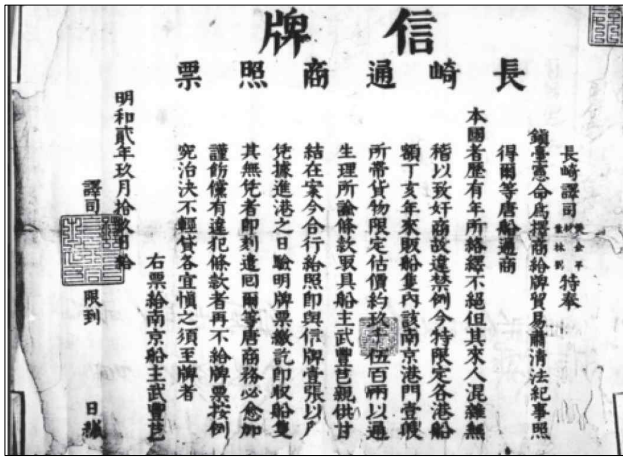 信牌
長崎通商照票
長崎譯司
特奉
鎮臺憲命為擇商給牌貿易肅清法紀事照
得爾等唐船通商
本國者歷有年所絡繹不絕但其來人混雜無
稽以致奸商故違禁例今特限定各港船
額丁亥年來販船隻內該南京港門壹艘
所帶貨物限定估價約玖千伍百兩以通
生理所諭條款取具船主武豐芑親供甘
結在案今合行給照即與信牌壹張以為
凭據進港之日驗明牌票繳訖即收船隻
其無凭者即刻遣囘爾等唐商務必愈加
謹飭倘有違犯條款者再不給牌票按例
究治決不輕貸各宜慎之須至牌者
右票給南京船主武豐芑
明和貳年玖月拾 日給
譯司
限到 日繳